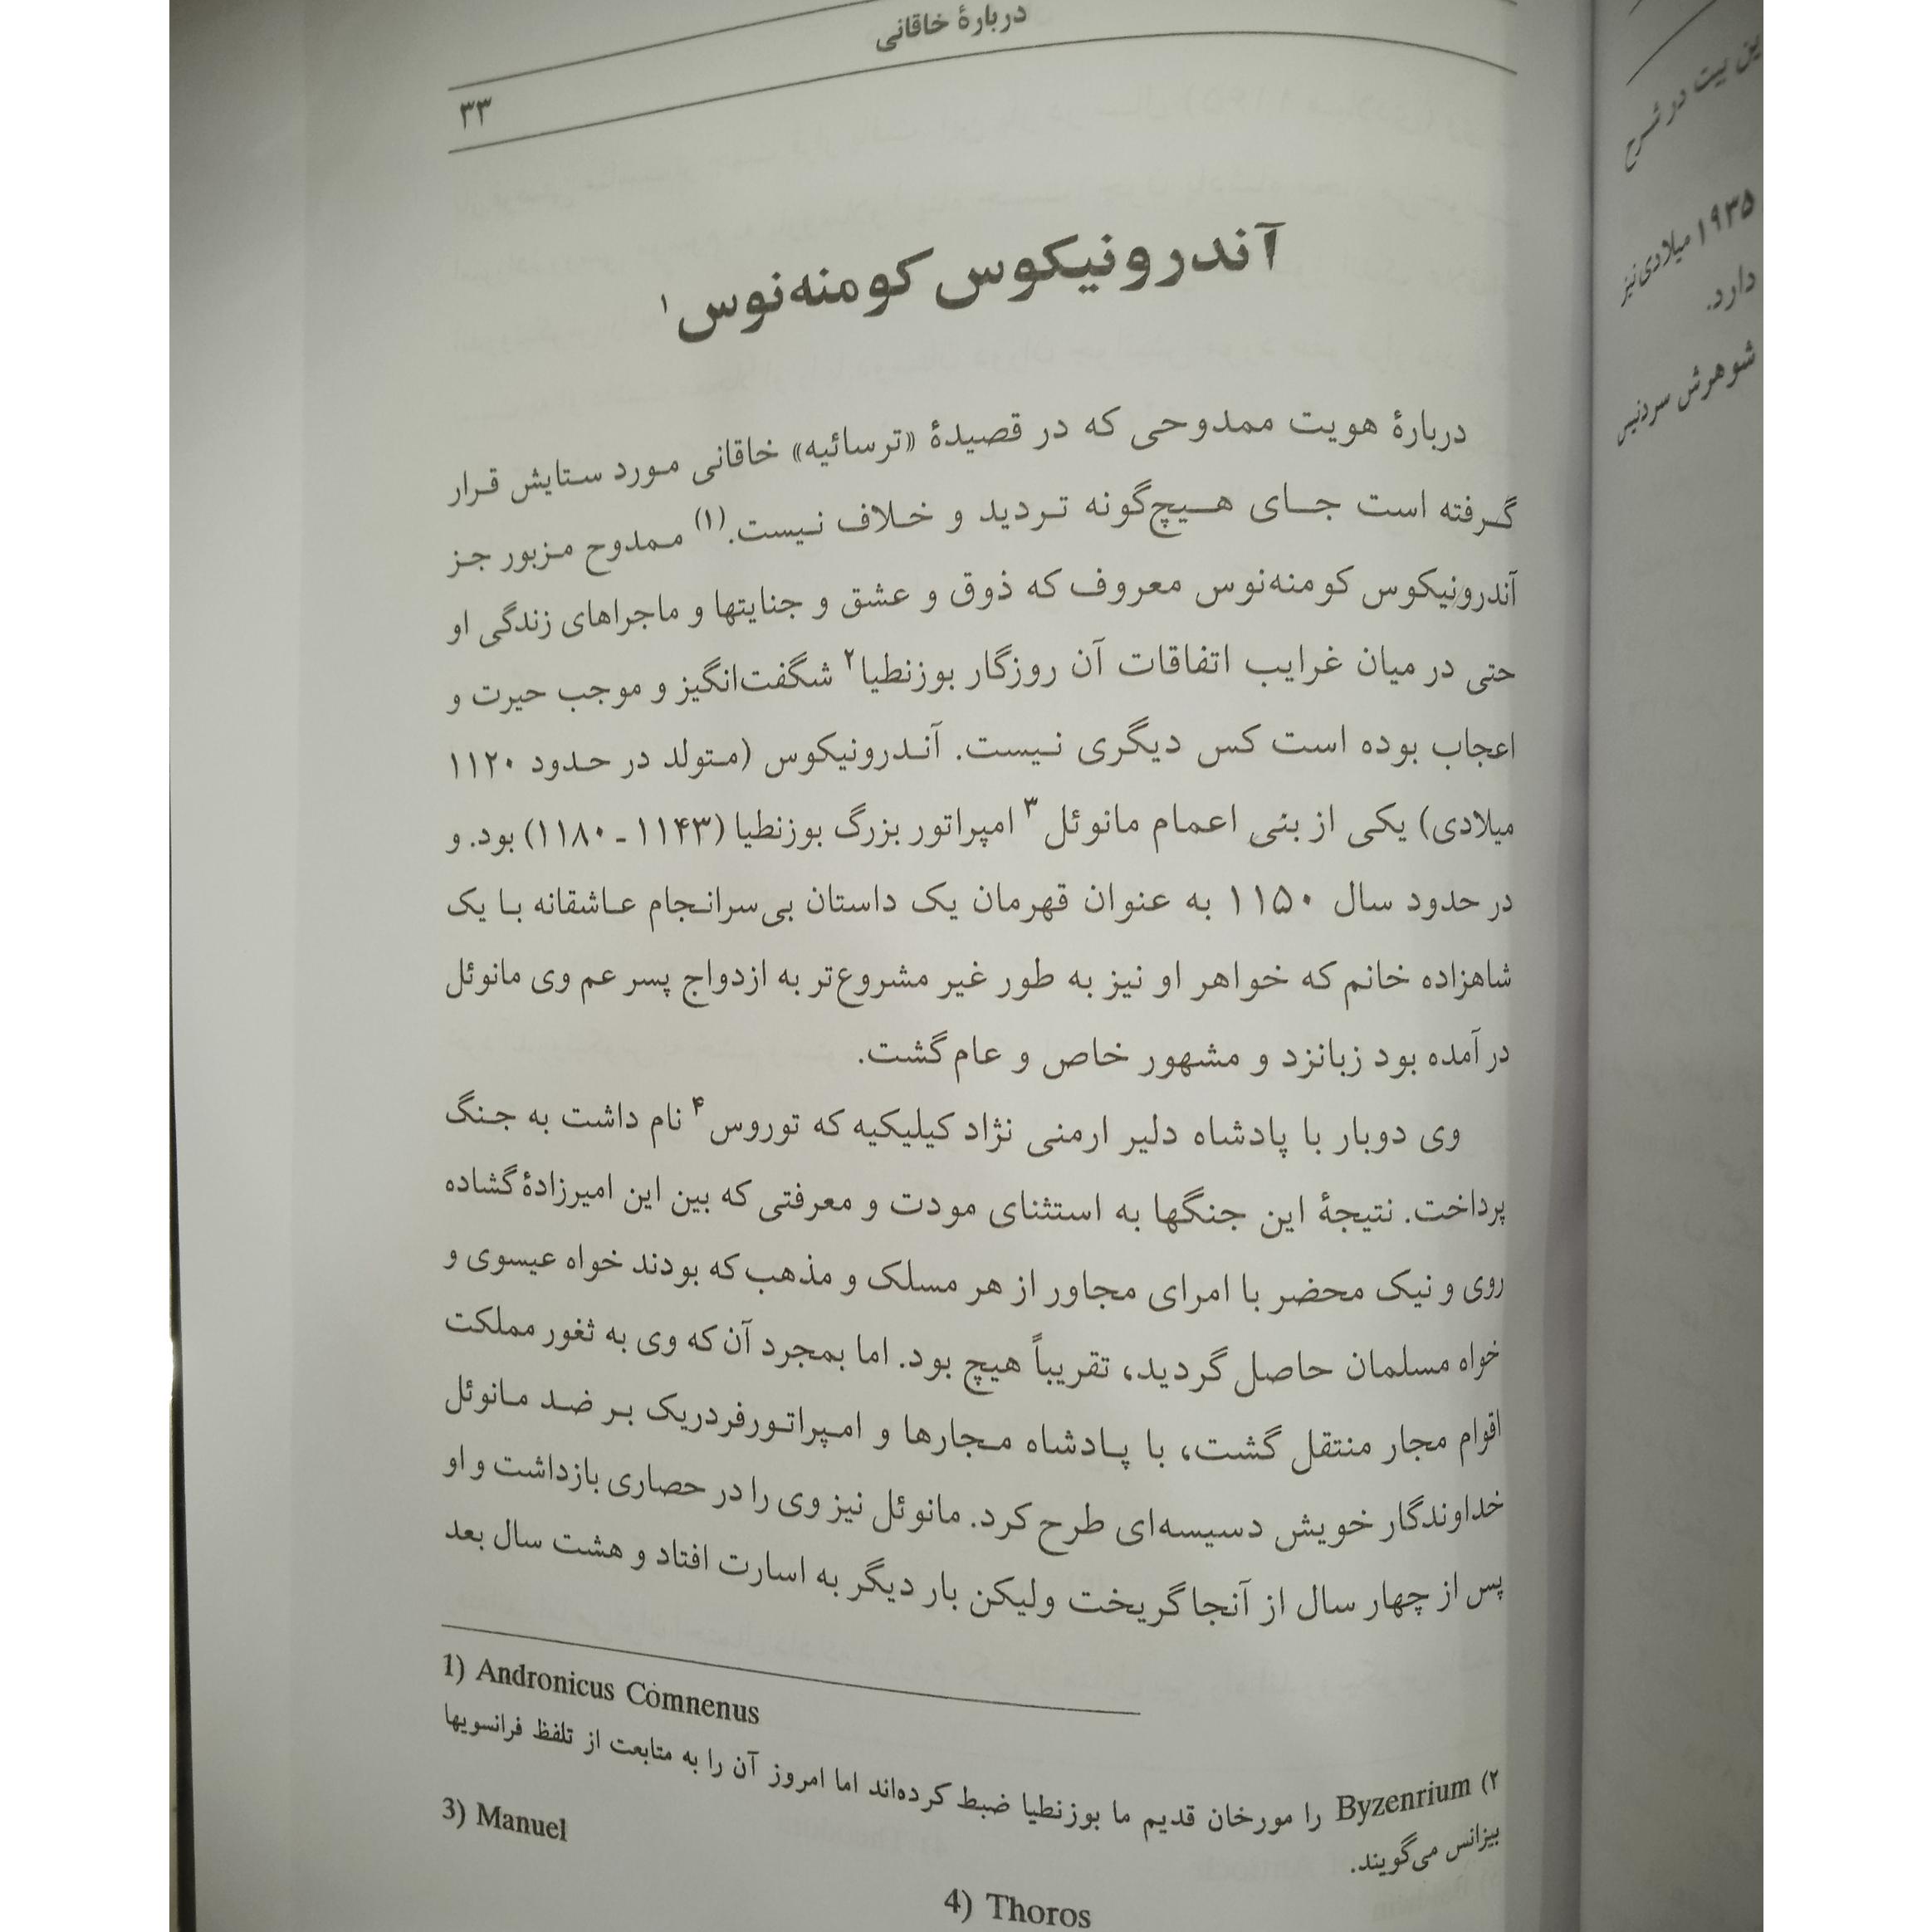 دربارهٔ خاقانی
۳۳
آندرونیکوس کومنه‌نوس ۱
دربارهٔ هویت ممدوحی که در قصیدهٔ «ترسائیه» خاقانی مورد ستایش قرار
گرفته است جای هیچ‌گونه تردید و خلاف نیست.(۱) ممدوح مزبور جز
آندرونیکوس کومنه‌نوس معروف که ذوق و عشق و جنایتها و ماجراهای زندگی او
حتی در میان غرایب اتفاقات آن روزگار بوزنطیا۲ شگفت‌انگیز و موجب حیرت و
اعجاب بوده است کس دیگری نیست. آندرونیکوس (متولد در حدود ۱۱۲۰
میلادی) یکی از بنی اعمام مانوئل۳ امپراتور بزرگ بوزنطیا (۱۱۴۳ ـ ۱۱۸۰) بود. و
در حدود سال ۱۱۵۰ به عنوان قهرمان یک داستان بی‌سرانجام عاشقانه با یک
شاهزاده خانم که خواهر او نیز به طور غیر مشروع‌تر به ازدواج پسر عم وی مانوئل
در آمده بود زبانزد و مشهور خاص و عام گشت.
وی دوبار با پادشاه دلیر ارمنی نژاد کیلیکیه که توروس۴ نام داشت به جنگ
پرداخت. نتیجهٔ این جنگها به استثنای مودت و معرفتی که بین این امیرزادهٔ گشاده
روی و نیک محضر با امرای مجاور از هر مسلک و مذهب که بودند خواه عیسوی و
خواه مسلمان حاصل گردید، تقریباً هیچ بود. اما بمجرد آن که وی به ثغور مملکت
اقوام مجار منتقل گشت، با پادشاه مجارها و امپراتورفردریک بر ضد مانوئل
خداوندگار خویش دسیسه‌ای طرح کرد. مانوئل نیز وی را در حصاری بازداشت و او
پس از چهار سال از آنجا گریخت ولیکن بار دیگر به اسارت افتاد و هشت سال بعد
1) Andronicus Comnenus
۲) Byzenrium را مورخان قدیم ما بوزنطیا ضبط کرده‌اند اما امروز آن را به متابعت از تلفظ فرانسویها
بیزانس می‌گویند.
3) Manuel
4) Thoros
ین بیت در شرح
۱۹۳۵ میلادی نیز
دارد.
شوهرش سردنیس